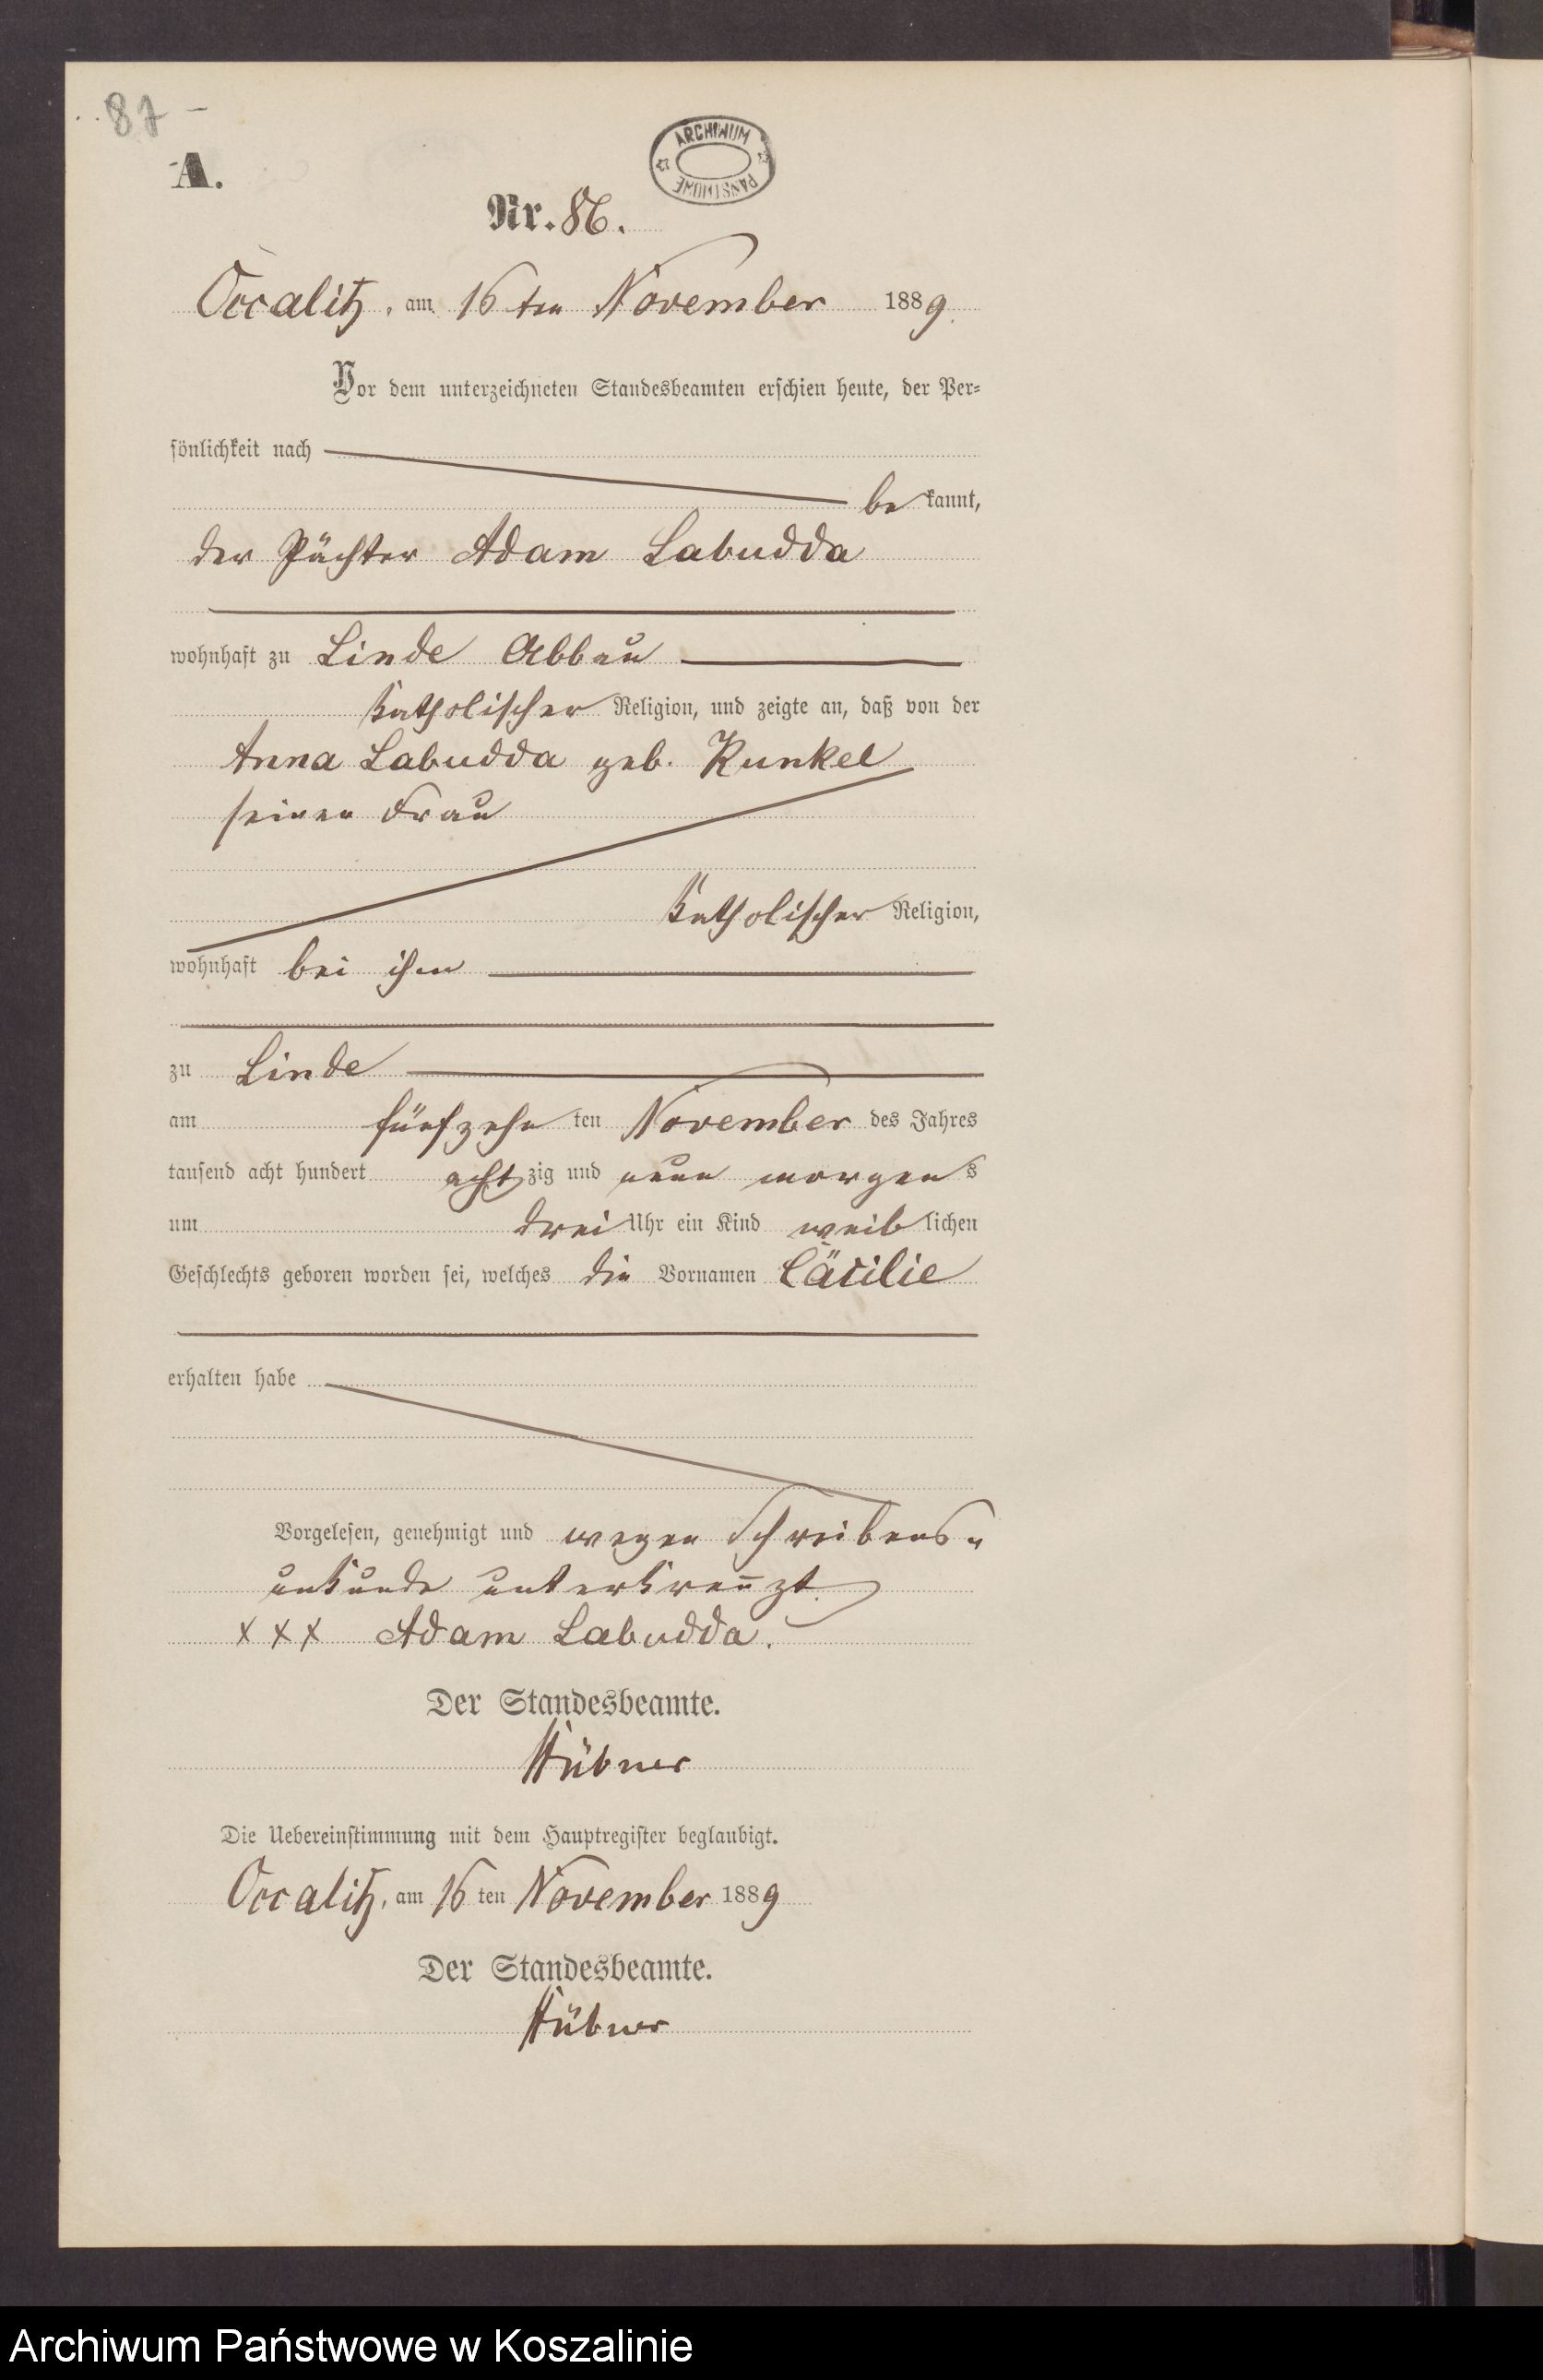 87 -
A.
ARCHIWUM PAŃSTWOWE
Nr. 86.
Occalitz, am 16 ten November 1889.
Vor dem unterzeichneten Standesbeamten erschien heute, der Per-
sönlichkeit nach
be kannt,
der Pächter Adam Labudda
wohnhaft zu Linde Abbau
katholischer Religion, und zeigte an, daß von der
Anna Labudda geb. Kunkel
seiner Frau
katholischer Religion,
wohnhaft bei ihm
zu Linde
am fünfzehn ten November des Jahres
tausend acht hundert acht zig und neun morgens
um drei Uhr ein Kind weib lichen
Geschlechts geboren worden sei, welches die Vornamen Cäcilie
erhalten habe
Vorgelesen, genehmigt und wegen Schreibens-
unkunde unterkreuzt.
XXX Adam Labudda.
Der Standesbeamte.
Hübner
Die Uebereinstimmung mit dem Hauptregister beglaubigt.
Occalitz, am 16 ten November 1889
Der Standesbeamte.
Hübner
Archiwum Państwowe w Koszalinie